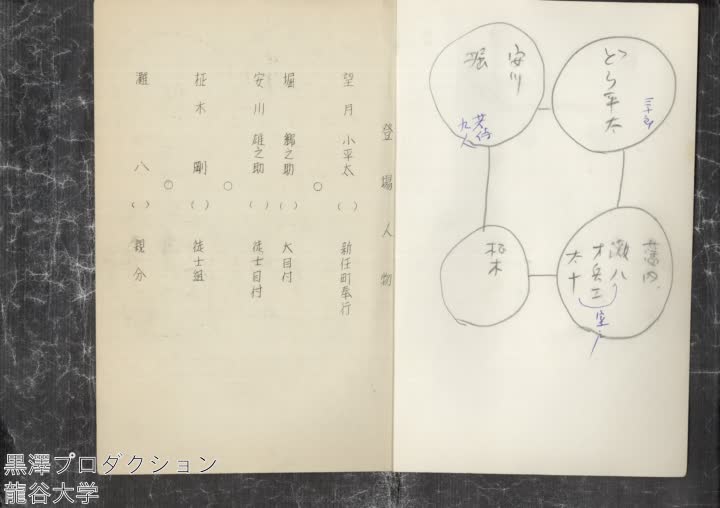 登場人物
望月小平太 () 新任町奉行
○
堀 郷之助 () 大目付
安川雄之助 () 徒士目付
○
柾木 剛 () 徒士組
○
灘 八 () 親分
どら平太
三十郎
安川
堀
若侍
九人
灘八
才兵エ
太十
柾木
黒澤プロダクション
龍谷大学